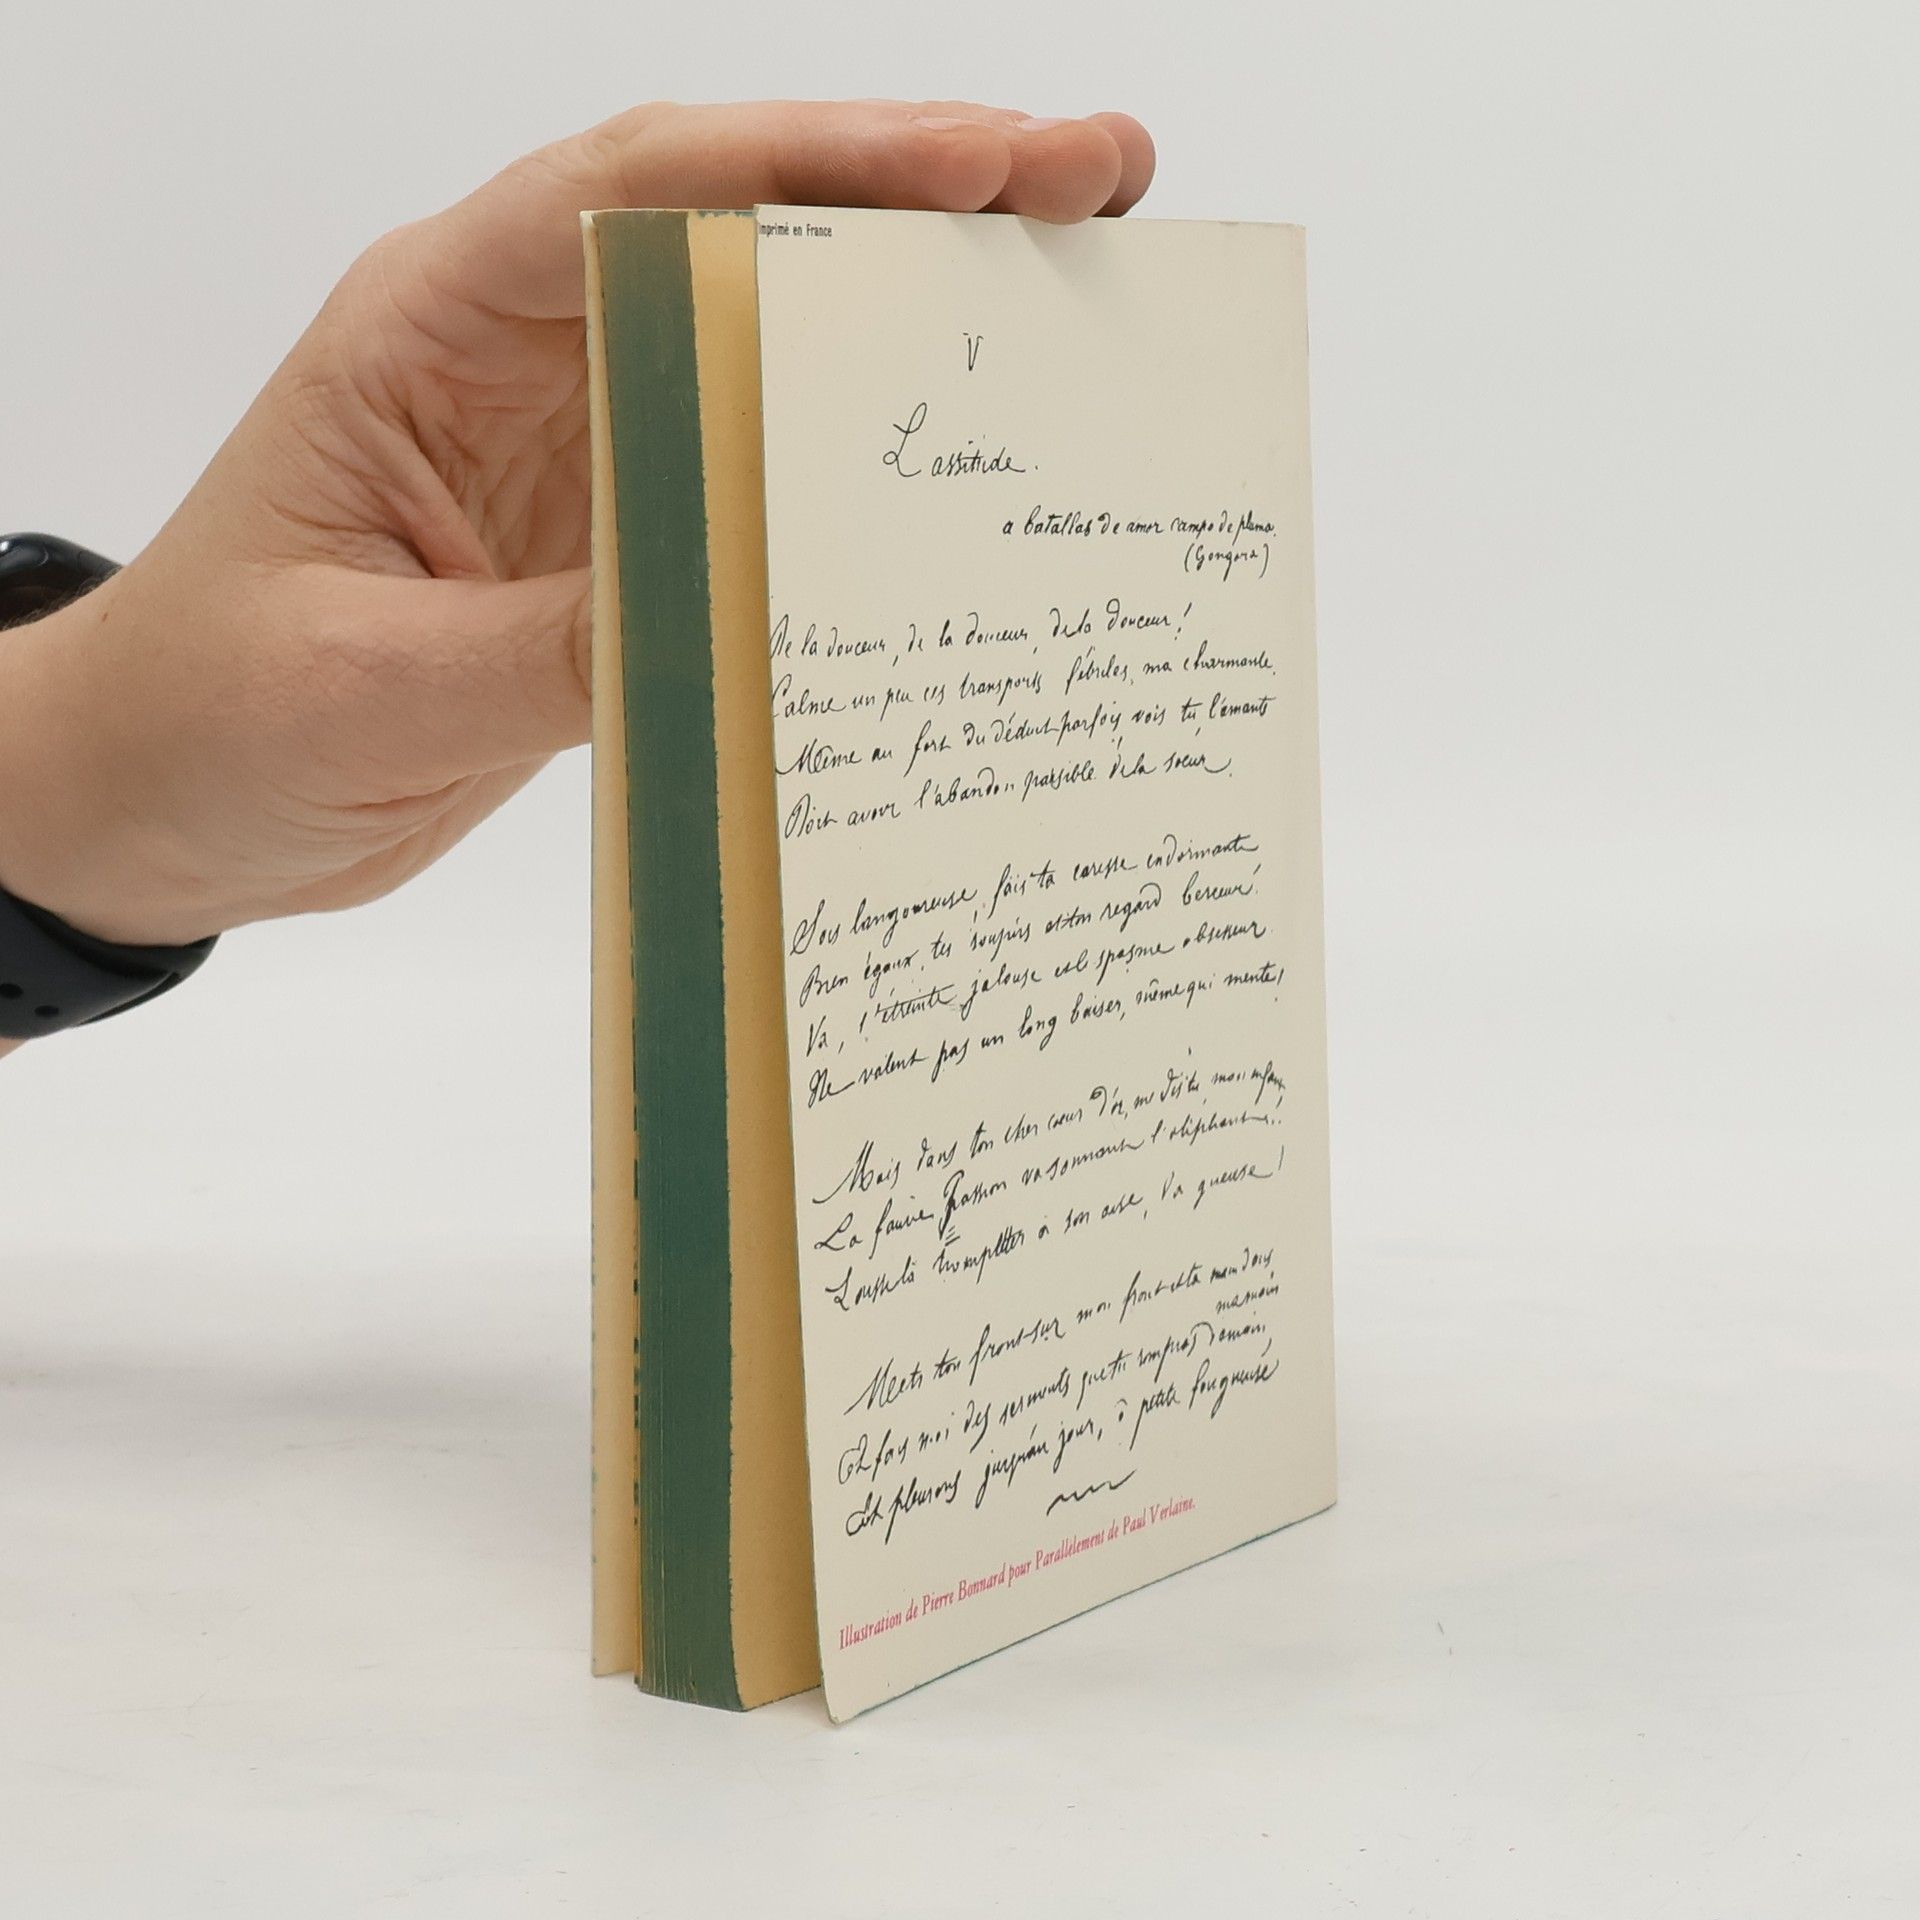 Imprimé en France
V
Lassitude.
a batallas de amor campo de pluma.
(Gongora)
De la douceur, de la douceur, de la douceur !
Calme un peu ces transports fébriles, ma charmante.
Même au fort du déduit parfois, vois tu, l'amante
Doit avoir l'abandon paisible de la sœur.
Sois langoureuse, fais ta caresse endormante
Bien égaux, tes soupirs et ton regard berceur.
Va, l'étreinte jalouse et le spasme obsesseur
Ne valent pas un long baiser, même qui mente !
Mais dans ton cher cœur d'or, me dis tu, mon enfant,
La fauve Passion va sonnant l'oliphant..!
Laisse la trompetter à son aise, la gueuse !
Mets ton front sur mon front et ta main dans
ma main
Et fais moi des serments que tu rompras demain,
Et pleurons jusqu'au jour, ô petite fougueuse
Illustration de Pierre Bonnard pour Parallèlement de Paul Verlaine.